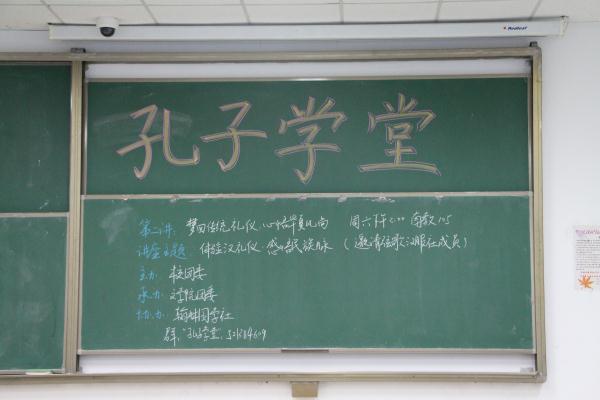 Redleaf
孔子学堂
第二讲: 梦回传统礼仪,心悟华夏风尚 周六下午2:00 南教105
讲座主题: 体验汉礼仪·感悟民族脉 (邀请弦歌汉服社成员)
主办: 校团委
承办: 文学院团委
协办: 国学社
群:"孔子学堂",